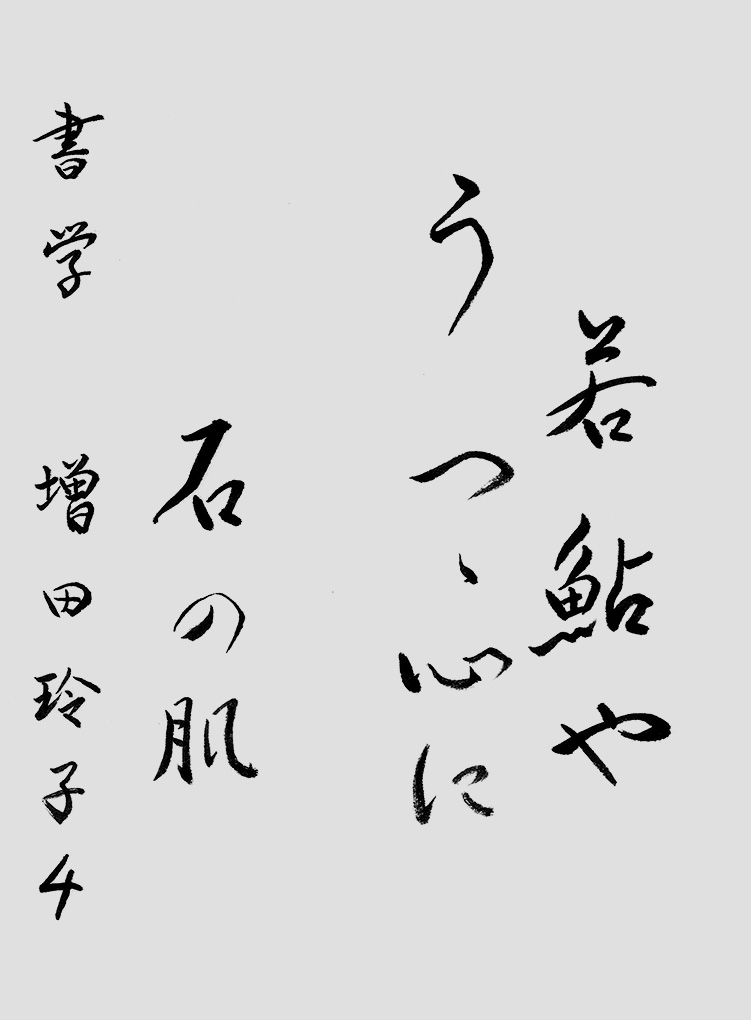 若鮎や
うつゝ心に
石の肌
書学 増田玲子4